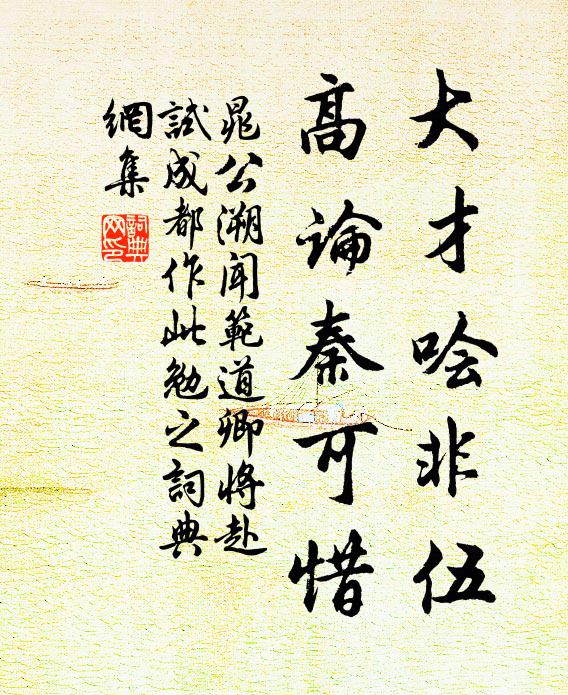 大才哙非伍
高論秦可惜
晁公溯聞範道卿將赴
試成都作此勉之詞典
網集
詞典
网印